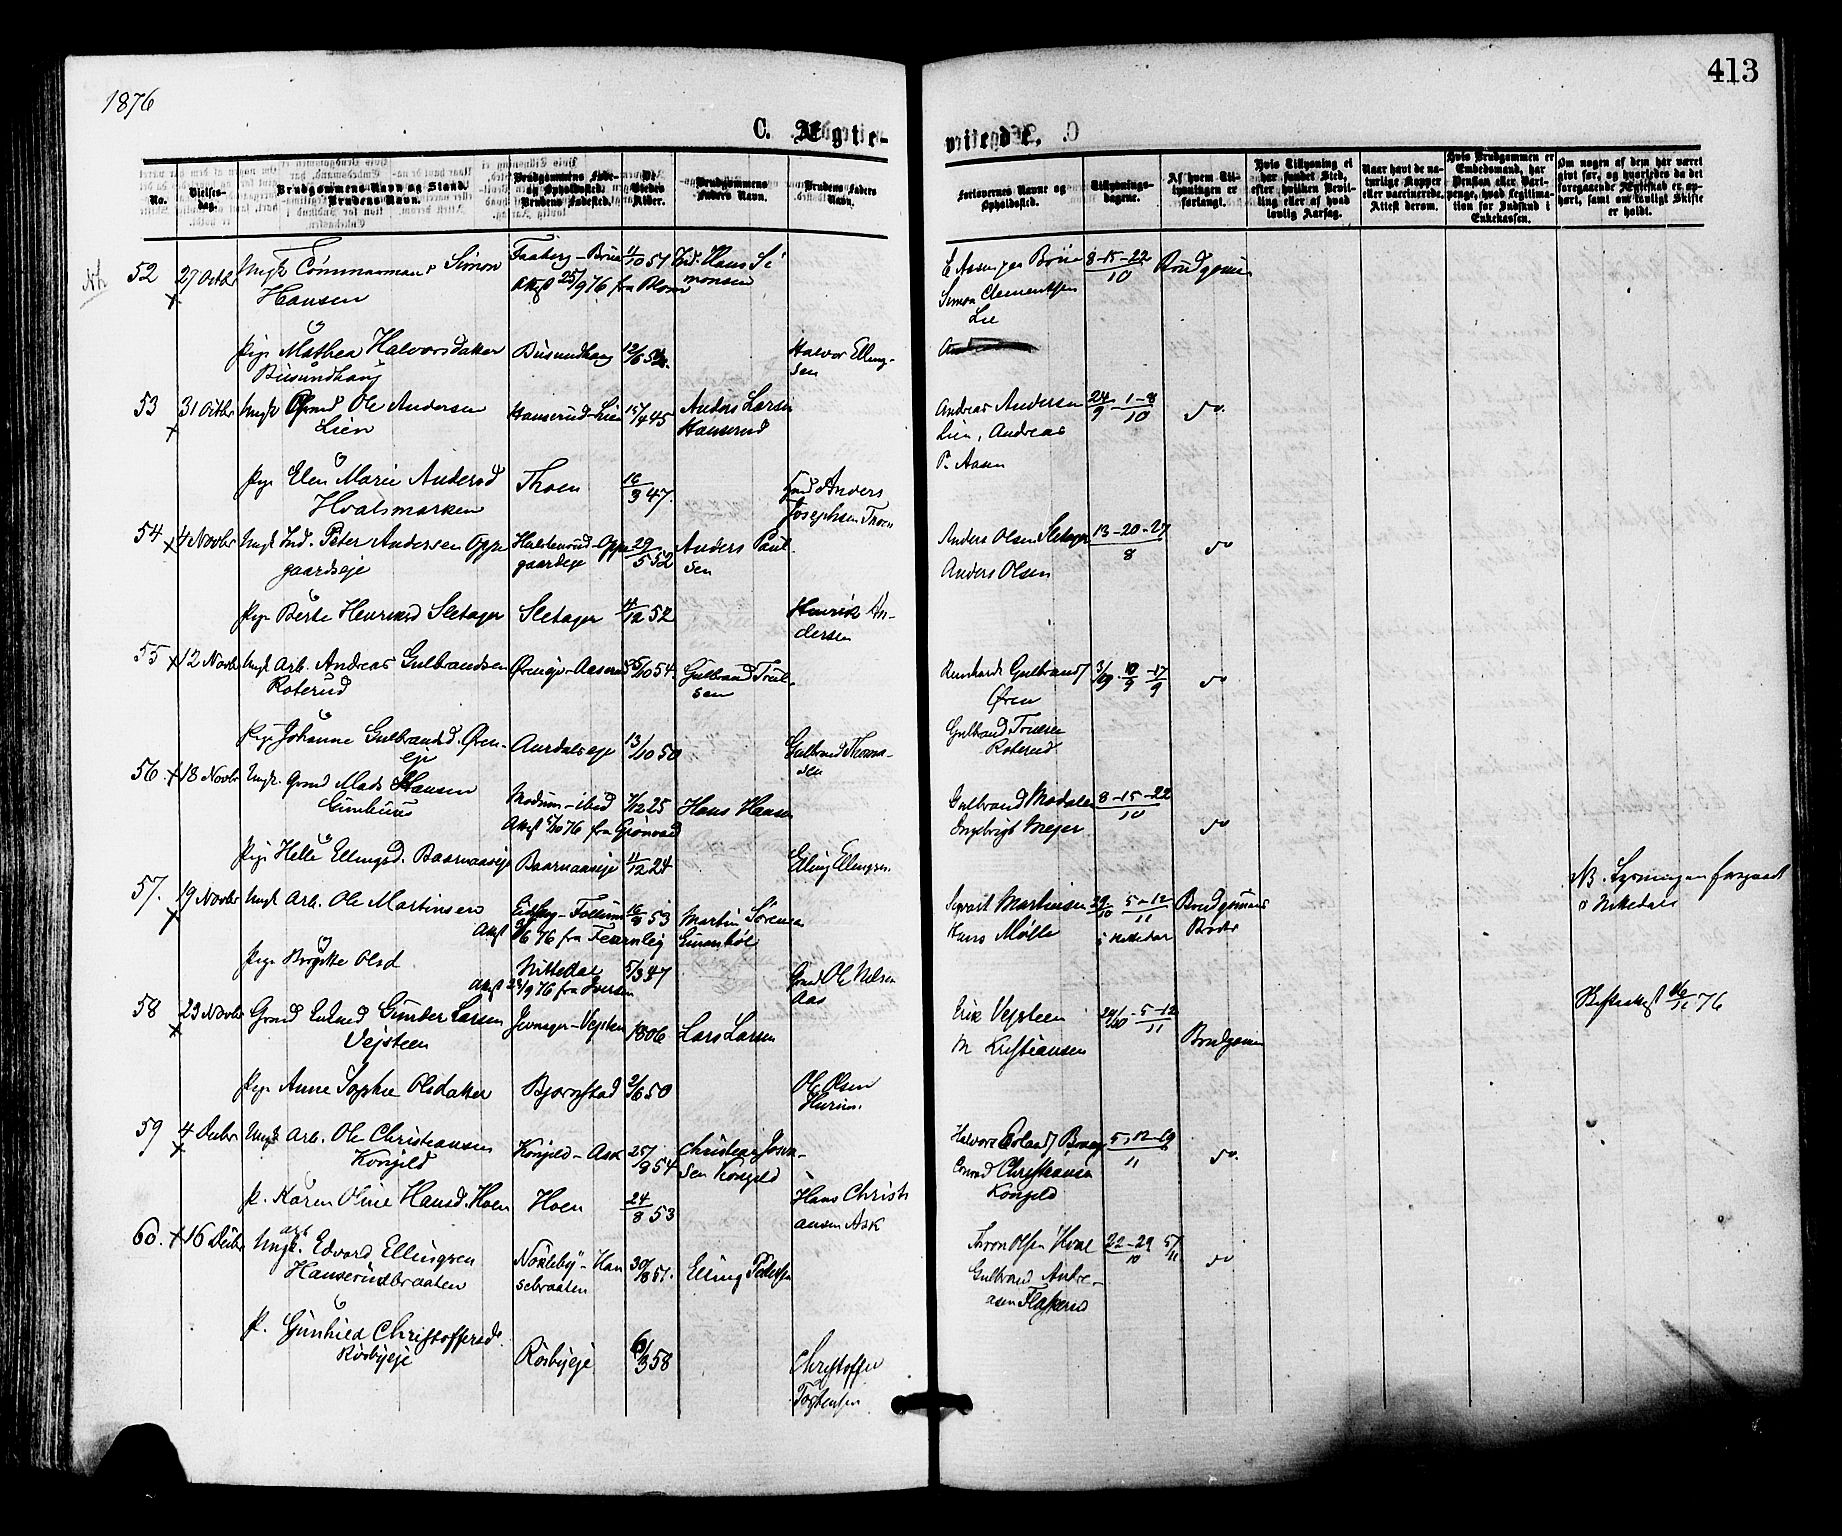 1876
413
C. Ægte-
viede.
No.
Vielses-
dag.
Brudgommens Navn og Stand.
Brudens Navn.
Brudgommens Føde-
og Opholdssted.
Brudens Fødested.
De
Viedes
Alder.
Brudgommens
Faders Navn.
Brudens Faders
Navn.
Forlovernes Navne og
Opholdssted.
Tillysnings-
dagene.
Af hvem Til-
lysningen er
forlangt.
Hvis Tillysning ei
har fundet Sted,
efter hvilken Bevil-
ling eller af hvad
lovlig Aarsag.
Naar havt de na-
turlige Kopper
eller vaccinerede.
Attest derom.
Hvis Brudgommen er
Embedsmand, har
Pension eller Vart-
penge, hvad Legitima-
tion for Indskud i
Enkekassen.
Om nogen af dem har været
gift før, og hvorledes da det
foregaaende Ægteskab er op-
hørt, samt om lovligt Skifte
er holdt.
52 27 Octbr Ungk Tømmermand Simon
Hansen
Faaberg - Brun
Attest 25/9 76 fra Blom
11/10 51 Ind. Hans Si
monsen
E Aasen pr Brun
Simon Clementsen
Lie
8-15-22
10
Brudgomm
Pige Mathea Halvorsdatter
Busundhaug
Busundhaug 12/6 52
Halvor Elling-
sen
53 31 Octbr Ungk Grmd Ole Andersen
Lien
Hanserud-Lien 15/4 45 Anders Larsen
Hanserud
Andreas Andersen
Lien, Andreas
P. Aasen
24/9 - 1-8/10
do.
Pige Elen Marie Andersd
Hvalsmarken
Thoen 16/3 47.
Gmd Anders
Josephsen Thoen
54 4 Novbr Ungk Ind. Peter Andersen Opp
gaardseje
Halstenrud-Opp
gaardeje
29/5 52 Anders Paul-
sen
Anders Olsen Sletager
Anders Olsen
13-20-27
8
do
Pige Berte Henriksd Sletager Sletager 11/12 52
Henrik An-
dersen
55 12 Novbr Ungk Arb. Andreas Gulbrandsen
Roterud
Øreneje-Aaserud 5/10 54. Gulbrand Truls-
sen
Reinhardt Gulbrands
Øren
Gulbrand Truesen
Roterud
3/9 10/9 - 17/9
do
Pige Johanne Gulbrandsd. Øren-
eje
Aurdalseje 13/10 50
Gulbrand Thoma-
sen
56. 18 Novbr Ungk. Grmd Mads Hansen
Gunhuus
Modum - ibid 7/12 25 Hans Hansen
Attest 5/10 76 fra Grønvold
Gulbrand Modalen
Ingebrigt Meyer
8-15-22
10
do
Pige Helle Ellingsd. Baarnaaseje Baarnaaseje 11/12 24
Elling Ellingsen.
57. 19 Novbr Ungk Arb. Ole Martinsen
Eidsberg - Follum
Attest 9/6 76 fra Fearnley
16/8 53 Martin Sørensen
Sivert Martinsen
Hans Møller
29/10 - 5-12/11
i Nittedal
Brudgommens
Broder
NB. Lysningen foregaaet
i Nittedal
Pige Birgitte Olsd
Nittedal
Attest 23/9 76 fra Iversen
5/3 47
Gmd Ole Nilsen
Aas
58 23 Novbr Grmd Enkmd Gunder Larsen
Vejsteen
Jevnager-Vejsteen 1806 Lars Larsen
Erik Vejsteen
M Kristiansen
29/10 - 5-12/11
Brudgommen
Skifteattest 16/11 76
Pige Anne Sophie Olsdatter Bjørnstad 2/6 50
Ole Olsen
Hurum.
59 4 Decbr Ungk Arb. Ole Christiansen
Kongeld
Kongeld - Ask 25/8 54 Christian Joen-
sen Kongeld
Conrad Christiansen
Kongeld
5-12-19
11
do.
P. Karen Oline Hansd. Hoen Hoen 24/8 53
Hans Christi
ansen Ask
60. 16 Decbr Ungk. arb Edvard Ellingsen
Hanserudbraaten
Nordeby - Han
sebraaten
30/8 51. Elling Pedersen
Thron Olsen Hval
Gulbrand Andre-
asen Flaskerud
22-29/10 5/11
do
P. Gunhild Christoffersd.
Rösbyeje
Rösbyeje 6/3 58
Christoffer
Torstensen